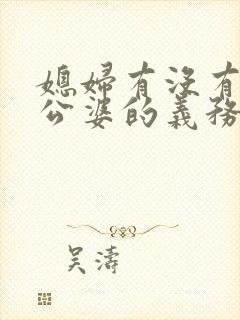 媳婦有沒有
公婆的義務
吳濤